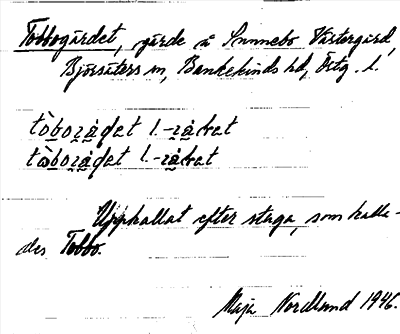 Tobbogärdet, gärde å Sunnebo Västergård,
Björsäters sn, Bankekinds hd, Östg. l.
tòboɟä̀det l. -ɹä̀ket
tàboɟä̀det l. -ɹä̀ket
Uppkallat efter stuga, som kalla-
des Tobbo.
Maja Nordlund 1946.